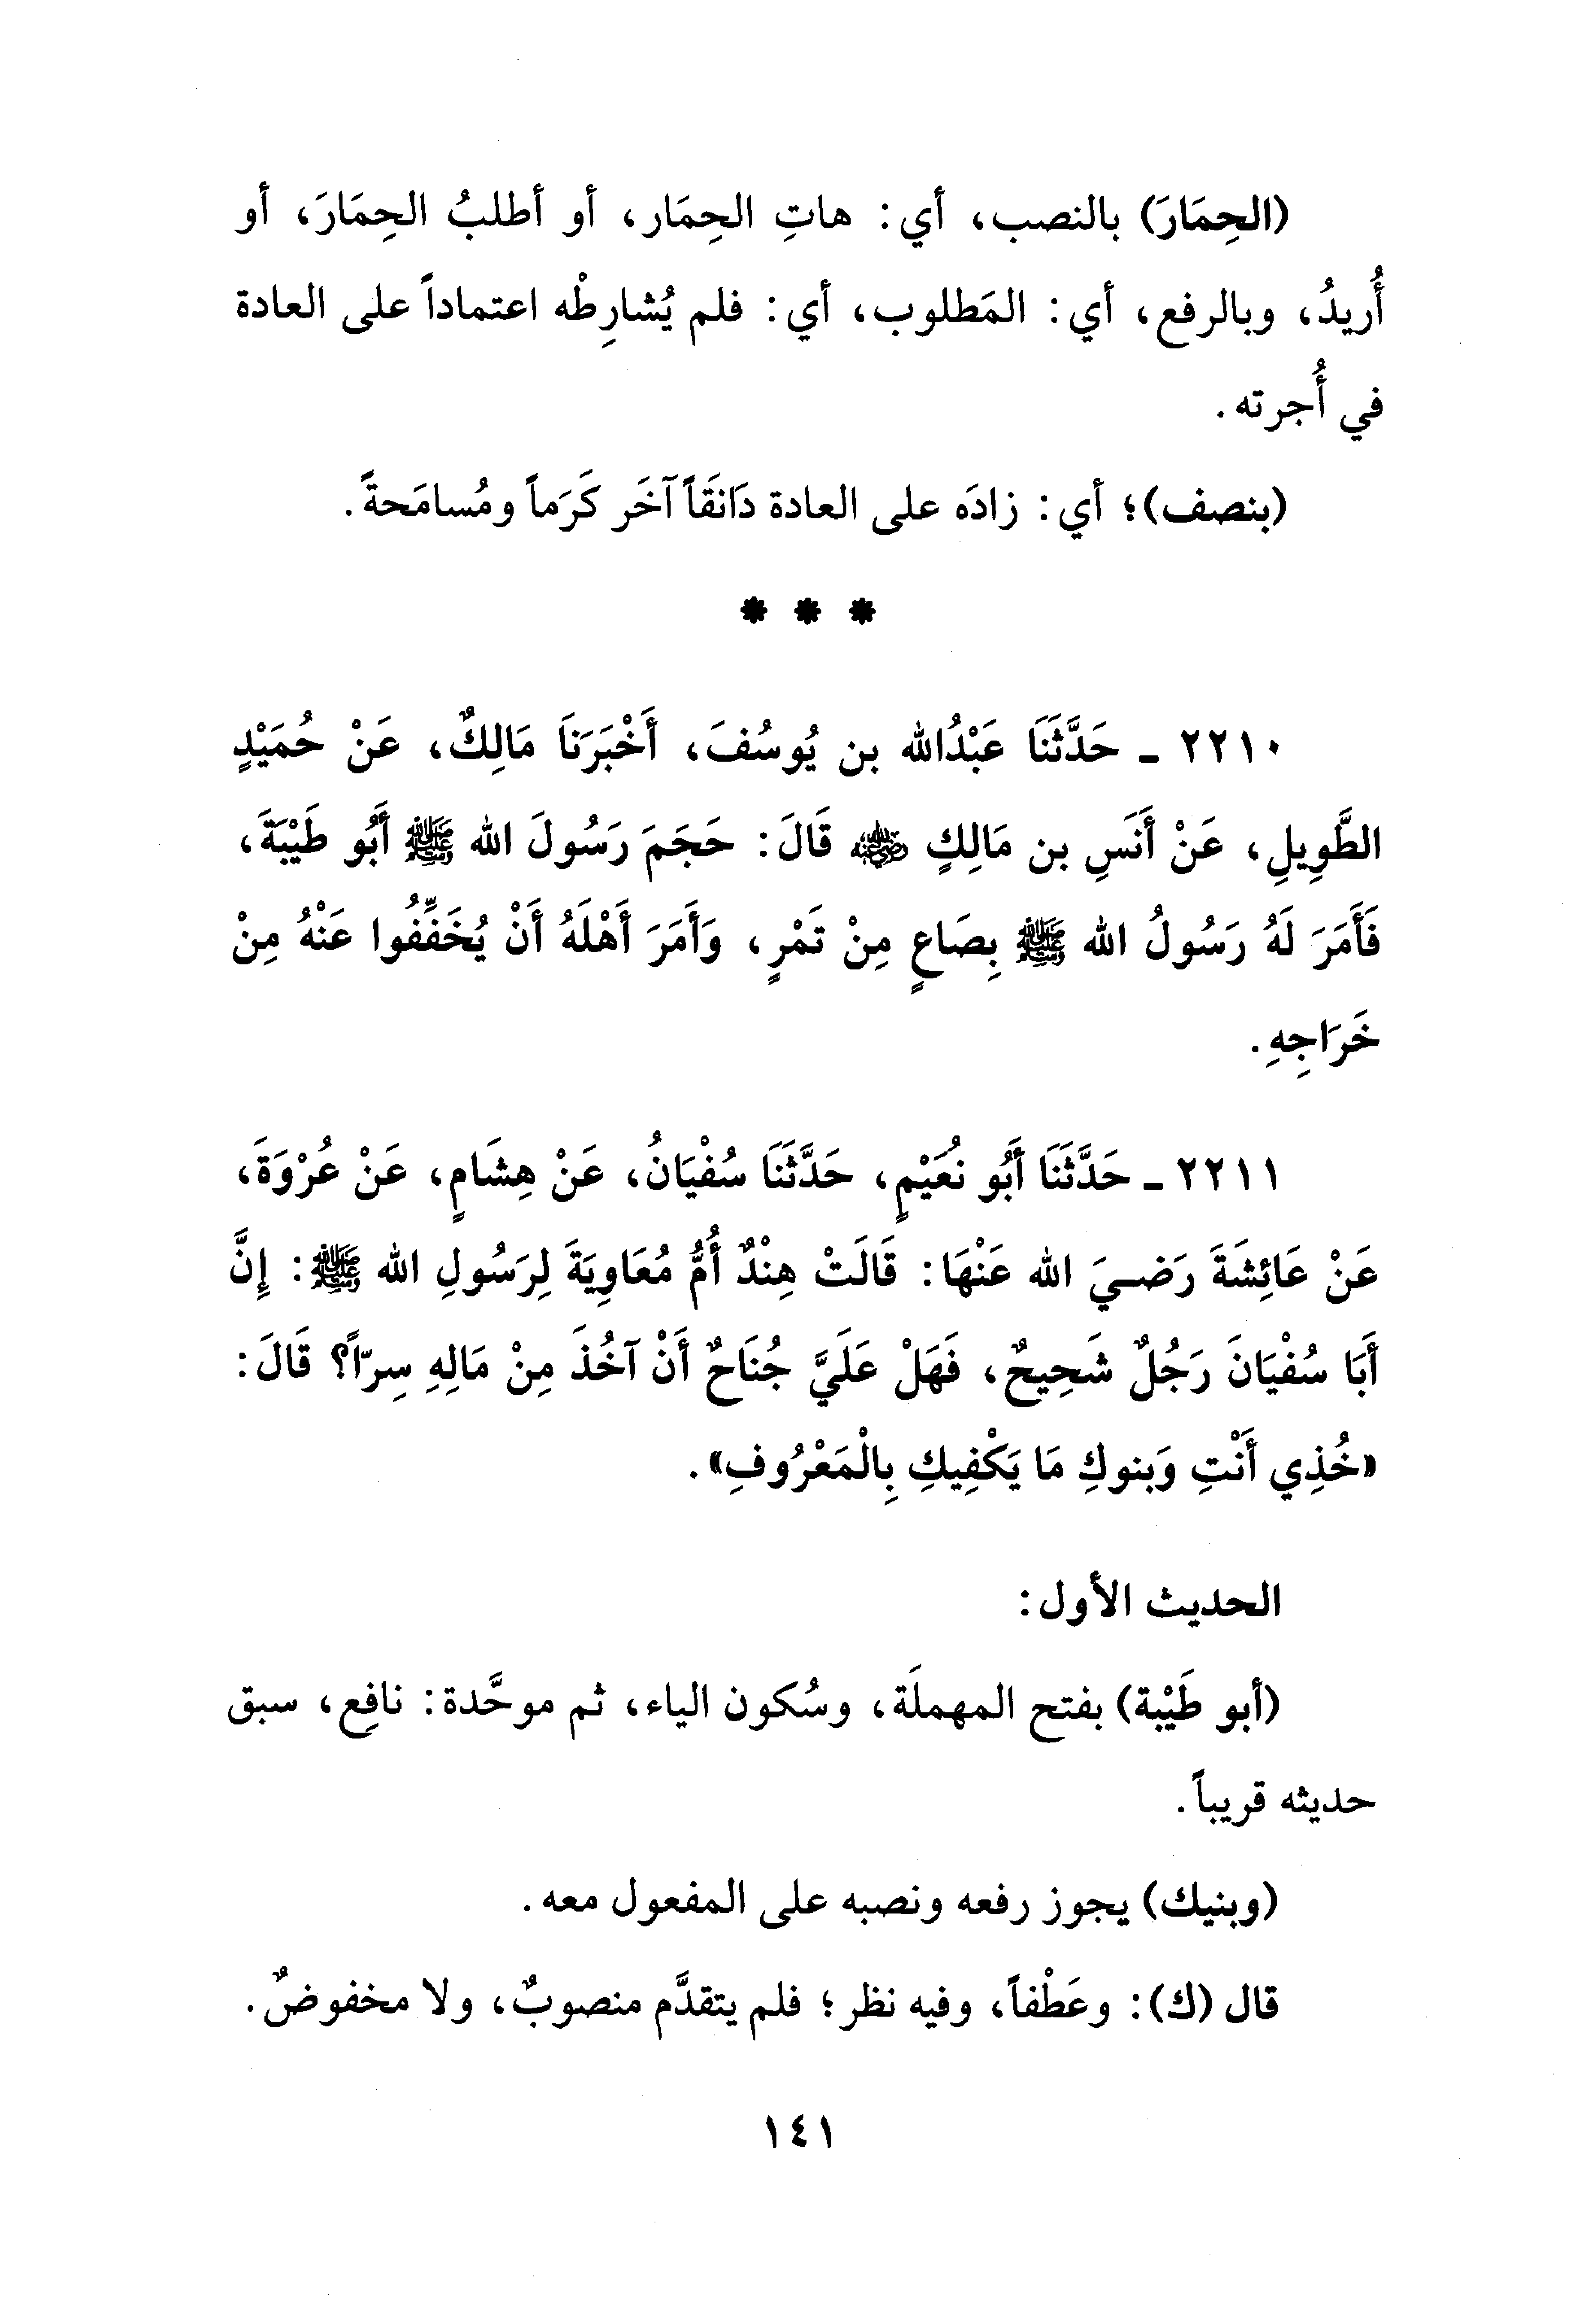 (الحِمَارَ) بالنصب، أي: هاتِ الحِمَار، أو أطلبُ الحِمَارَ، أو
أُريدُ، وبالرفع، أي: المَطلوب، أي: فلم يُشارِطْه اعتماداً على العادة
في أُجرته.
(بنصف)؛ أي: زادَه على العادة دَانَقاً آخَر كَرَماً ومُسامَحةً.
* * *
٢٢١٠ ـ حَدَّثَنَا عَبْدُالله بن يُوسُفَ، أَخْبَرَنَا مَالِكٌ، عَنْ حُمَيْدٍ
الطَّوِيلِ، عَنْ أَنَسِ بن مَالِكٍ رضي الله عنه قَالَ: حَجَمَ رَسُولَ الله ﷺ أَبُو طَيْبَةَ،
فَأَمَرَ لَهُ رَسُولُ الله ﷺ بِصَاعٍ مِنْ تَمْرٍ، وَأَمَرَ أَهْلَهُ أَنْ يُخَفِّفُوا عَنْهُ مِنْ
خَرَاجِهِ.
٢٢١١ ـ حَدَّثَنَا أَبُو نُعَيْمٍ، حَدَّثَنَا سُفْيَانُ، عَنْ هِشَامٍ، عَنْ عُرْوَةَ،
عَنْ عَائِشَةَ رَضيَ الله عَنْهَا: قَالَتْ هِنْدٌ أُمُّ مُعَاوِيَةَ لِرَسُولِ الله ﷺ: إِنَّ
أَبَا سُفْيَانَ رَجُلٌ شَحِيحٌ، فَهَلْ عَلَيَّ جُنَاحٌ أَنْ آخُذَ مِنْ مَالِهِ سِرّاً؟ قَالَ:
«خُذِي أَنْتِ وَبنوكِ مَا يَكْفِيكِ بِالْمَعْرُوفِ».
الحديث الأول:
(أبو طَيْبة) بفتح المهملَة، وسُكون الياء، ثم موحَّدة: نافِع، سبق
حديثه قريباً.
(وبنيك) يجوز رفعه ونصبه على المفعول معه.
قال (ك): وعَطْفاً، وفيه نظر؛ فلم يتقدَّم منصوبٌ، ولا مخفوضٌ.
١٤١